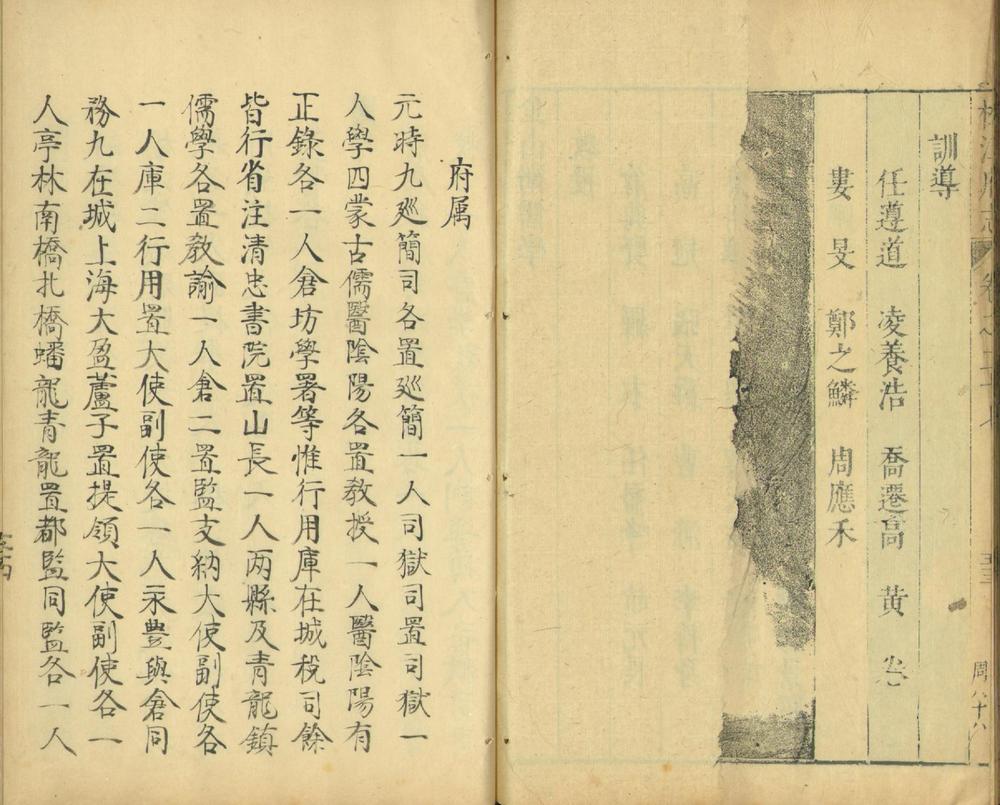 訓導
任遵道 凌養浩 喬遷高 黃
婁旻 鄭之鱗 周應禾
府属
元時九廵簡司各置廵簡一人司獄司置司獄一
人學四蒙古儒醫陰陽各置教授一人醫陰陽有
正錄各一人倉坊學署等惟行用庫在城稅司餘
皆行省注清忠書院置山長一人两縣及青龍鎮
儒學各置教諭一人倉二置監支納大使副使各
一人庫二行用置大使副使各一人永豊與倉同
務九在城上海大盈蘆子置提領大使副使各一
人亭林南橋北橋蟠龍青龍置都監同監各一人